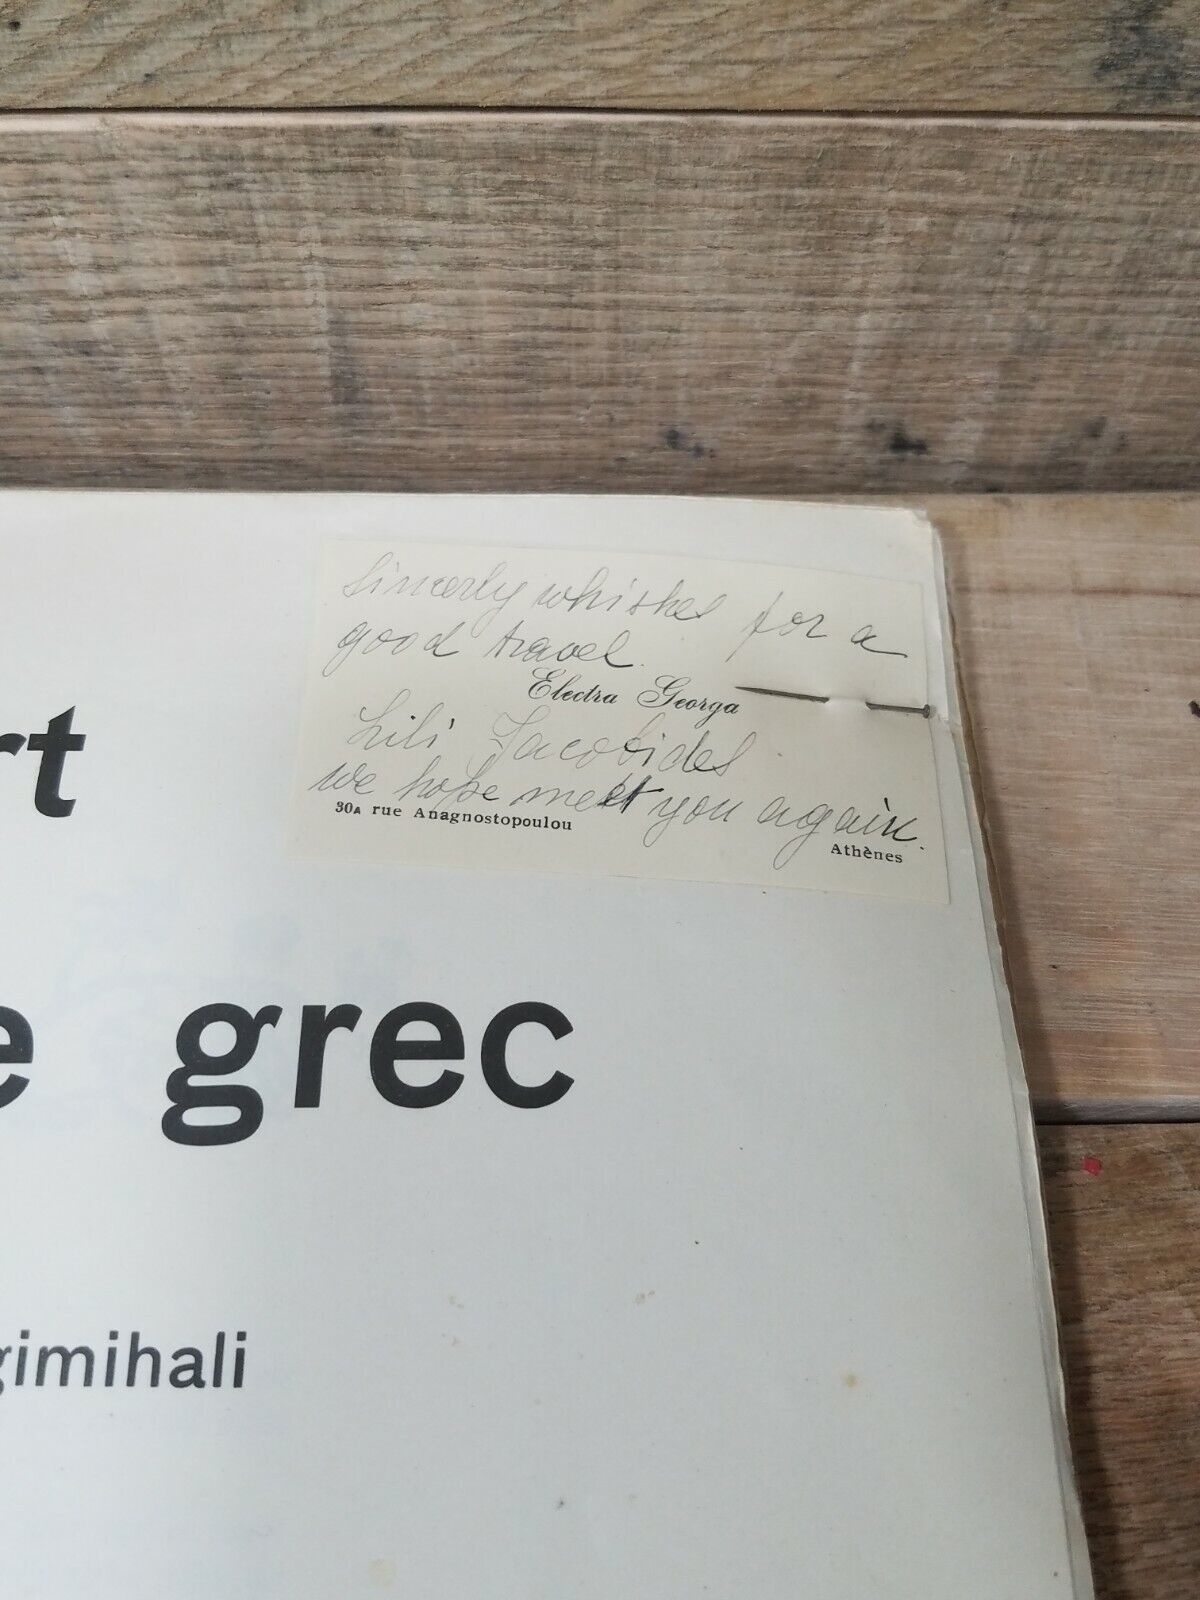 Sincerly whishes for a
good travel.
Electra Georga
Lili Jacobides
we hope meet you again.
30A rue Anagnostopoulou
Athènes
rt
e grec
gimihali